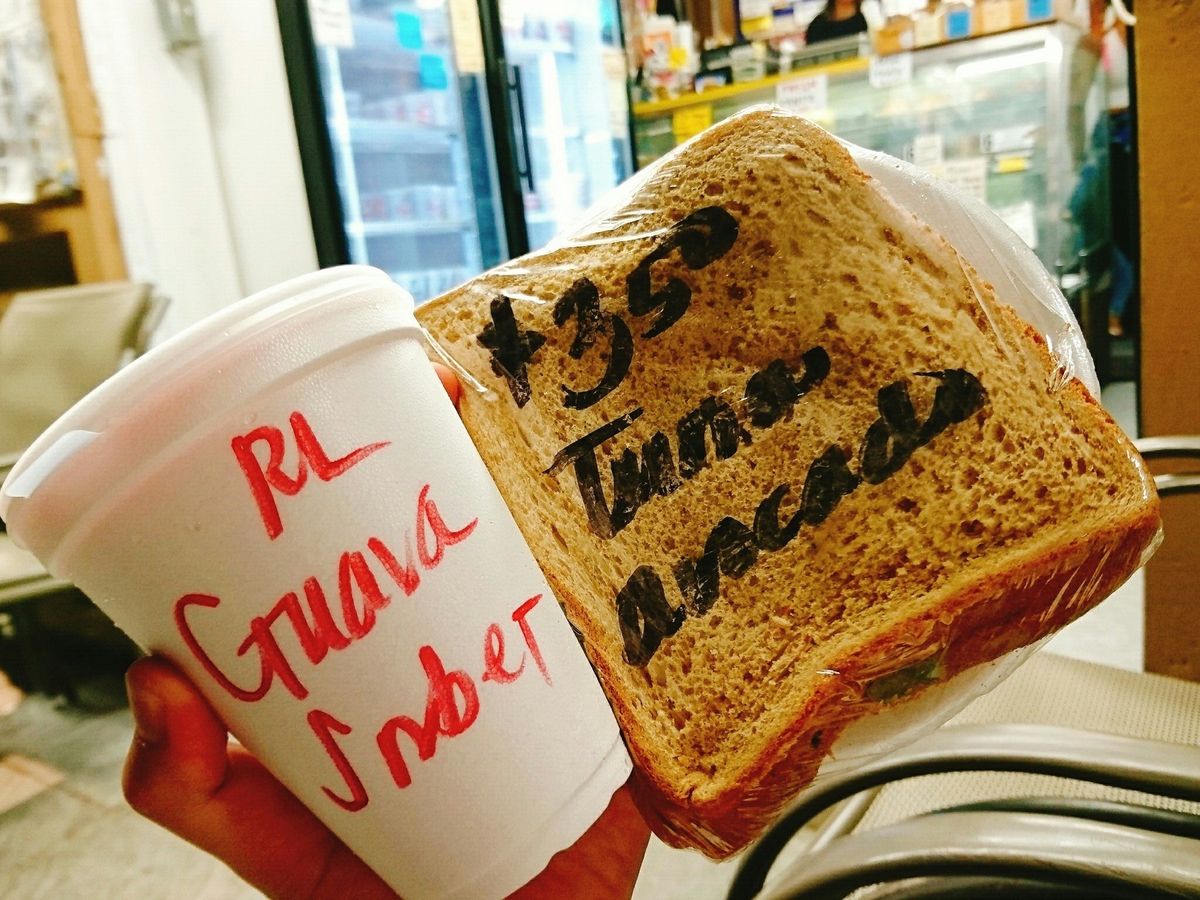 RL
Guava
Sorbet
+350
Tuna
avocado